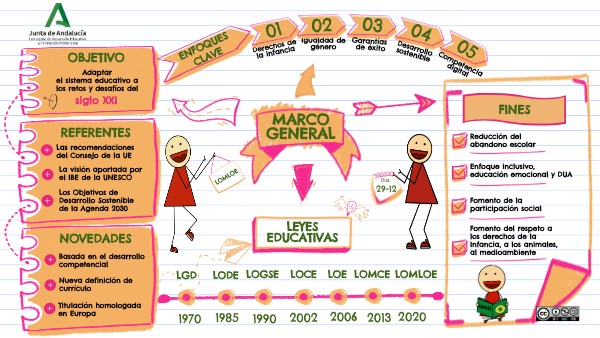 Junta de Andalucía
OBJETIVO
Adaptar
el sistema educativo a
los retos y desafíos del
siglo XXI
REFERENTES
Las recomendaciones
del Consejo de la UE
La visión aportada por
el IBE de la UNESCO
Los Objetivos de
Desarrollo Sostenible
de la Agenda 2030
NOVEDADES
Basada en el desarrollo
competencial
Nueva definición de
currículo
Titulación homologada
en Europa
ENFOQUES
CLAVE
01
Derechos de
la infancia
02
Igualdad de
género
03
Garantías
de éxito
04
Desarrollo
sostenible
05
Competencia
digital
MARCO
GENERAL
LOMLOE
Día
29-12
LEYES
EDUCATIVAS
LGD LODE LOGSE LOCE LOE LOMCE LOMLOE
1970 1985 1990 2002 2006 2013 2020
FINES
Reducción del
abandono escolar
Enfoque inclusivo,
educación emocional y DUA
Fomento de la
participación social
Fomento del respeto a
los derechos de la
infancia, a los animales,
al medioambiente